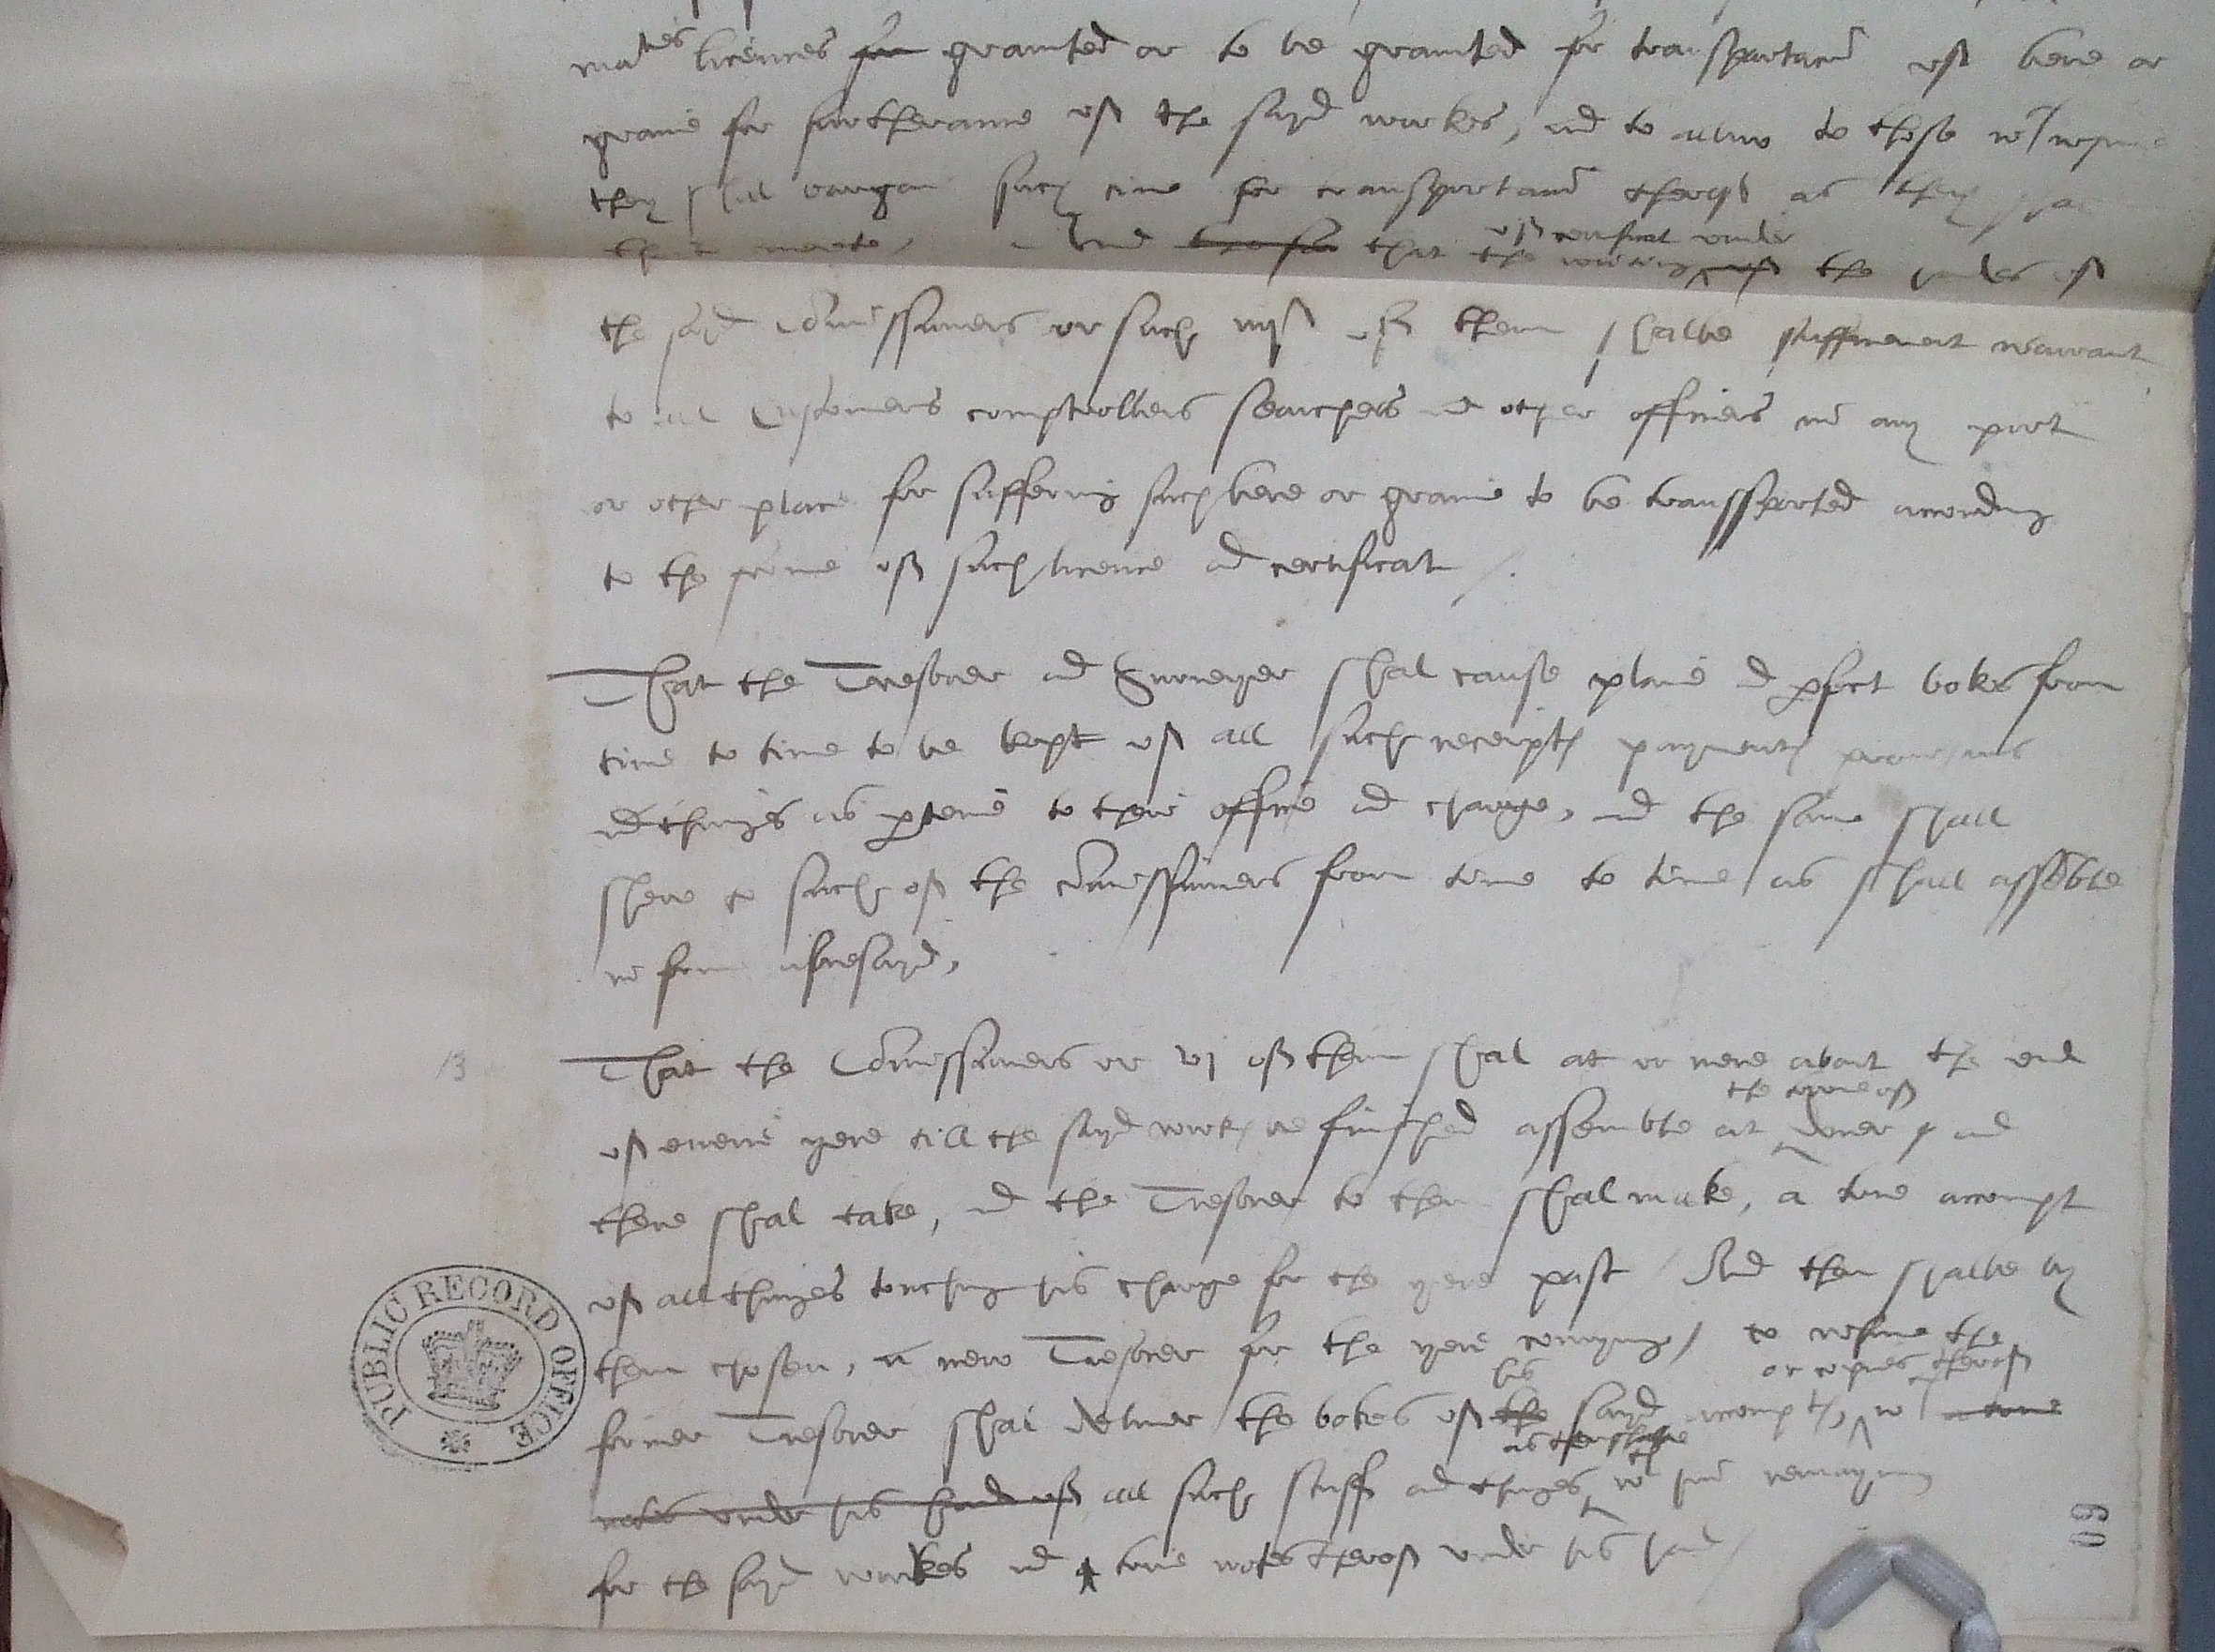 ma^ties licences for granted or to be graunted for transportacion of bere or
graine for furtherance of the sayd workes, and to allow to those w^t whome
they shall bargain such time for transportacion therof as they shal
thinke mete, And that the of certificat under the handes of
the sayd Comissioners or such vj of them shalbe sufficient warant
to all Customers comptrollers searchers and other officers in any port
or other place for suffering such bere or graine to be transsported according
to the forme of such licence and certificat /.
That the Tresorer and Surveyer shal cause plaine and perfect bokes from
time to time to be kept of all such receiptes paymentes provisions
and thinges as perteine to their office and charge, and the same shall
shew to such of the Comissioners from time to time as shall assemble
in forme aforesayd,
13 That the Comissioners or vj of them shal at or nere about the end
the towne of
of everie yere till the sayd workes be finished assemble at Dover, and
there shal take, and the Tresorer to them shal make, a true accompt
of all thinges touching his charge for the yere past / And then shalbe by
them chosen, a new Tresorer for the yere comyng / to whome the
his or copies therof
former Tresorer shal deliver the bokes of the sayd accomptes, w^t a true
as then shalbe
notes under his hand of all such stuff and thinges w^ch remayning
for the sayd workes and true notes therof under his hand /
PUBLIC RECORD OFFICE
60